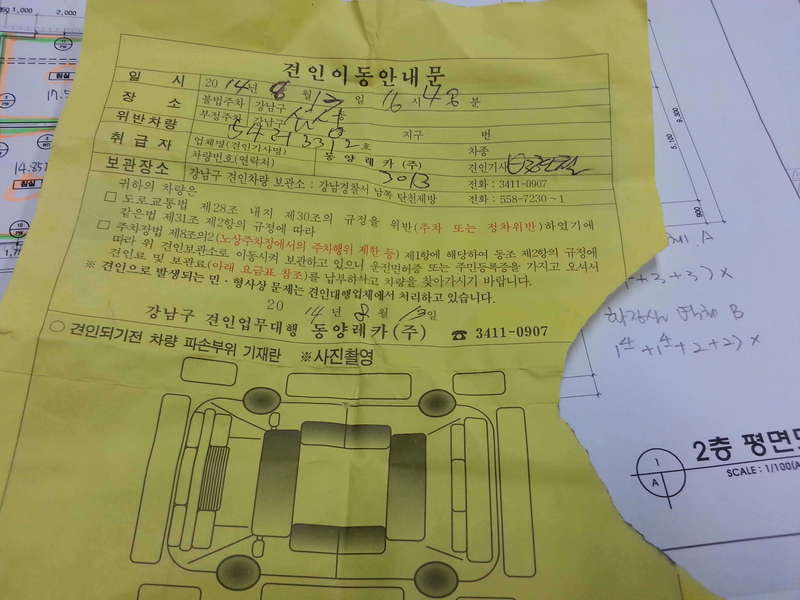 견인이동안내문
일 시 2014년 8월 13일 16시 48분
장 소 불법주차 강남구
부정주차 강남구 동
위반차량 3312호 지구 번
취급자 업체명(견인기사명) 동양레카(주) 차종
차량번호(연락처) 3013 견인기사
보관장소 강남구 견인차량 보관소 : 강남경찰서 남쪽 탄천제방 전화 : 3411-0907
전화 : 558-7230~1
귀하의 차량은
□ 도로교통법 제28조 내지 제30조의 규정을 위반(주차 또는 정차위반)하였기에
같은법 제31조 제2항의 규정에 따라
□ 주차장법 제8조의2(노상주차장에서의 주차행위 제한 등) 제1항에 해당하여 동조 제2항의 규정에
따라 위 견인보관소로 이동시켜 보관하고 있으니 운전면허증 또는 주민등록증을 가지고 오셔서
견인료 및 보관료(아래 요금표 참조)를 납부하시고 차량을 찾아가시기 바랍니다.
※ 견인으로 발생되는 민·형사상 문제는 견인대행업체에서 처리하고 있습니다.
2014년 8월 13일
강남구 견인업무대행 동양레카(주) ☎ 3411-0907
○ 견인되기전 차량 파손부위 기재란 ※사진촬영
1,000
2,000
침실
14.85
침실
A
+3+3)×
B
14+14+2+2)×
1
A
2층 평면도
SCALE : 1/100(A